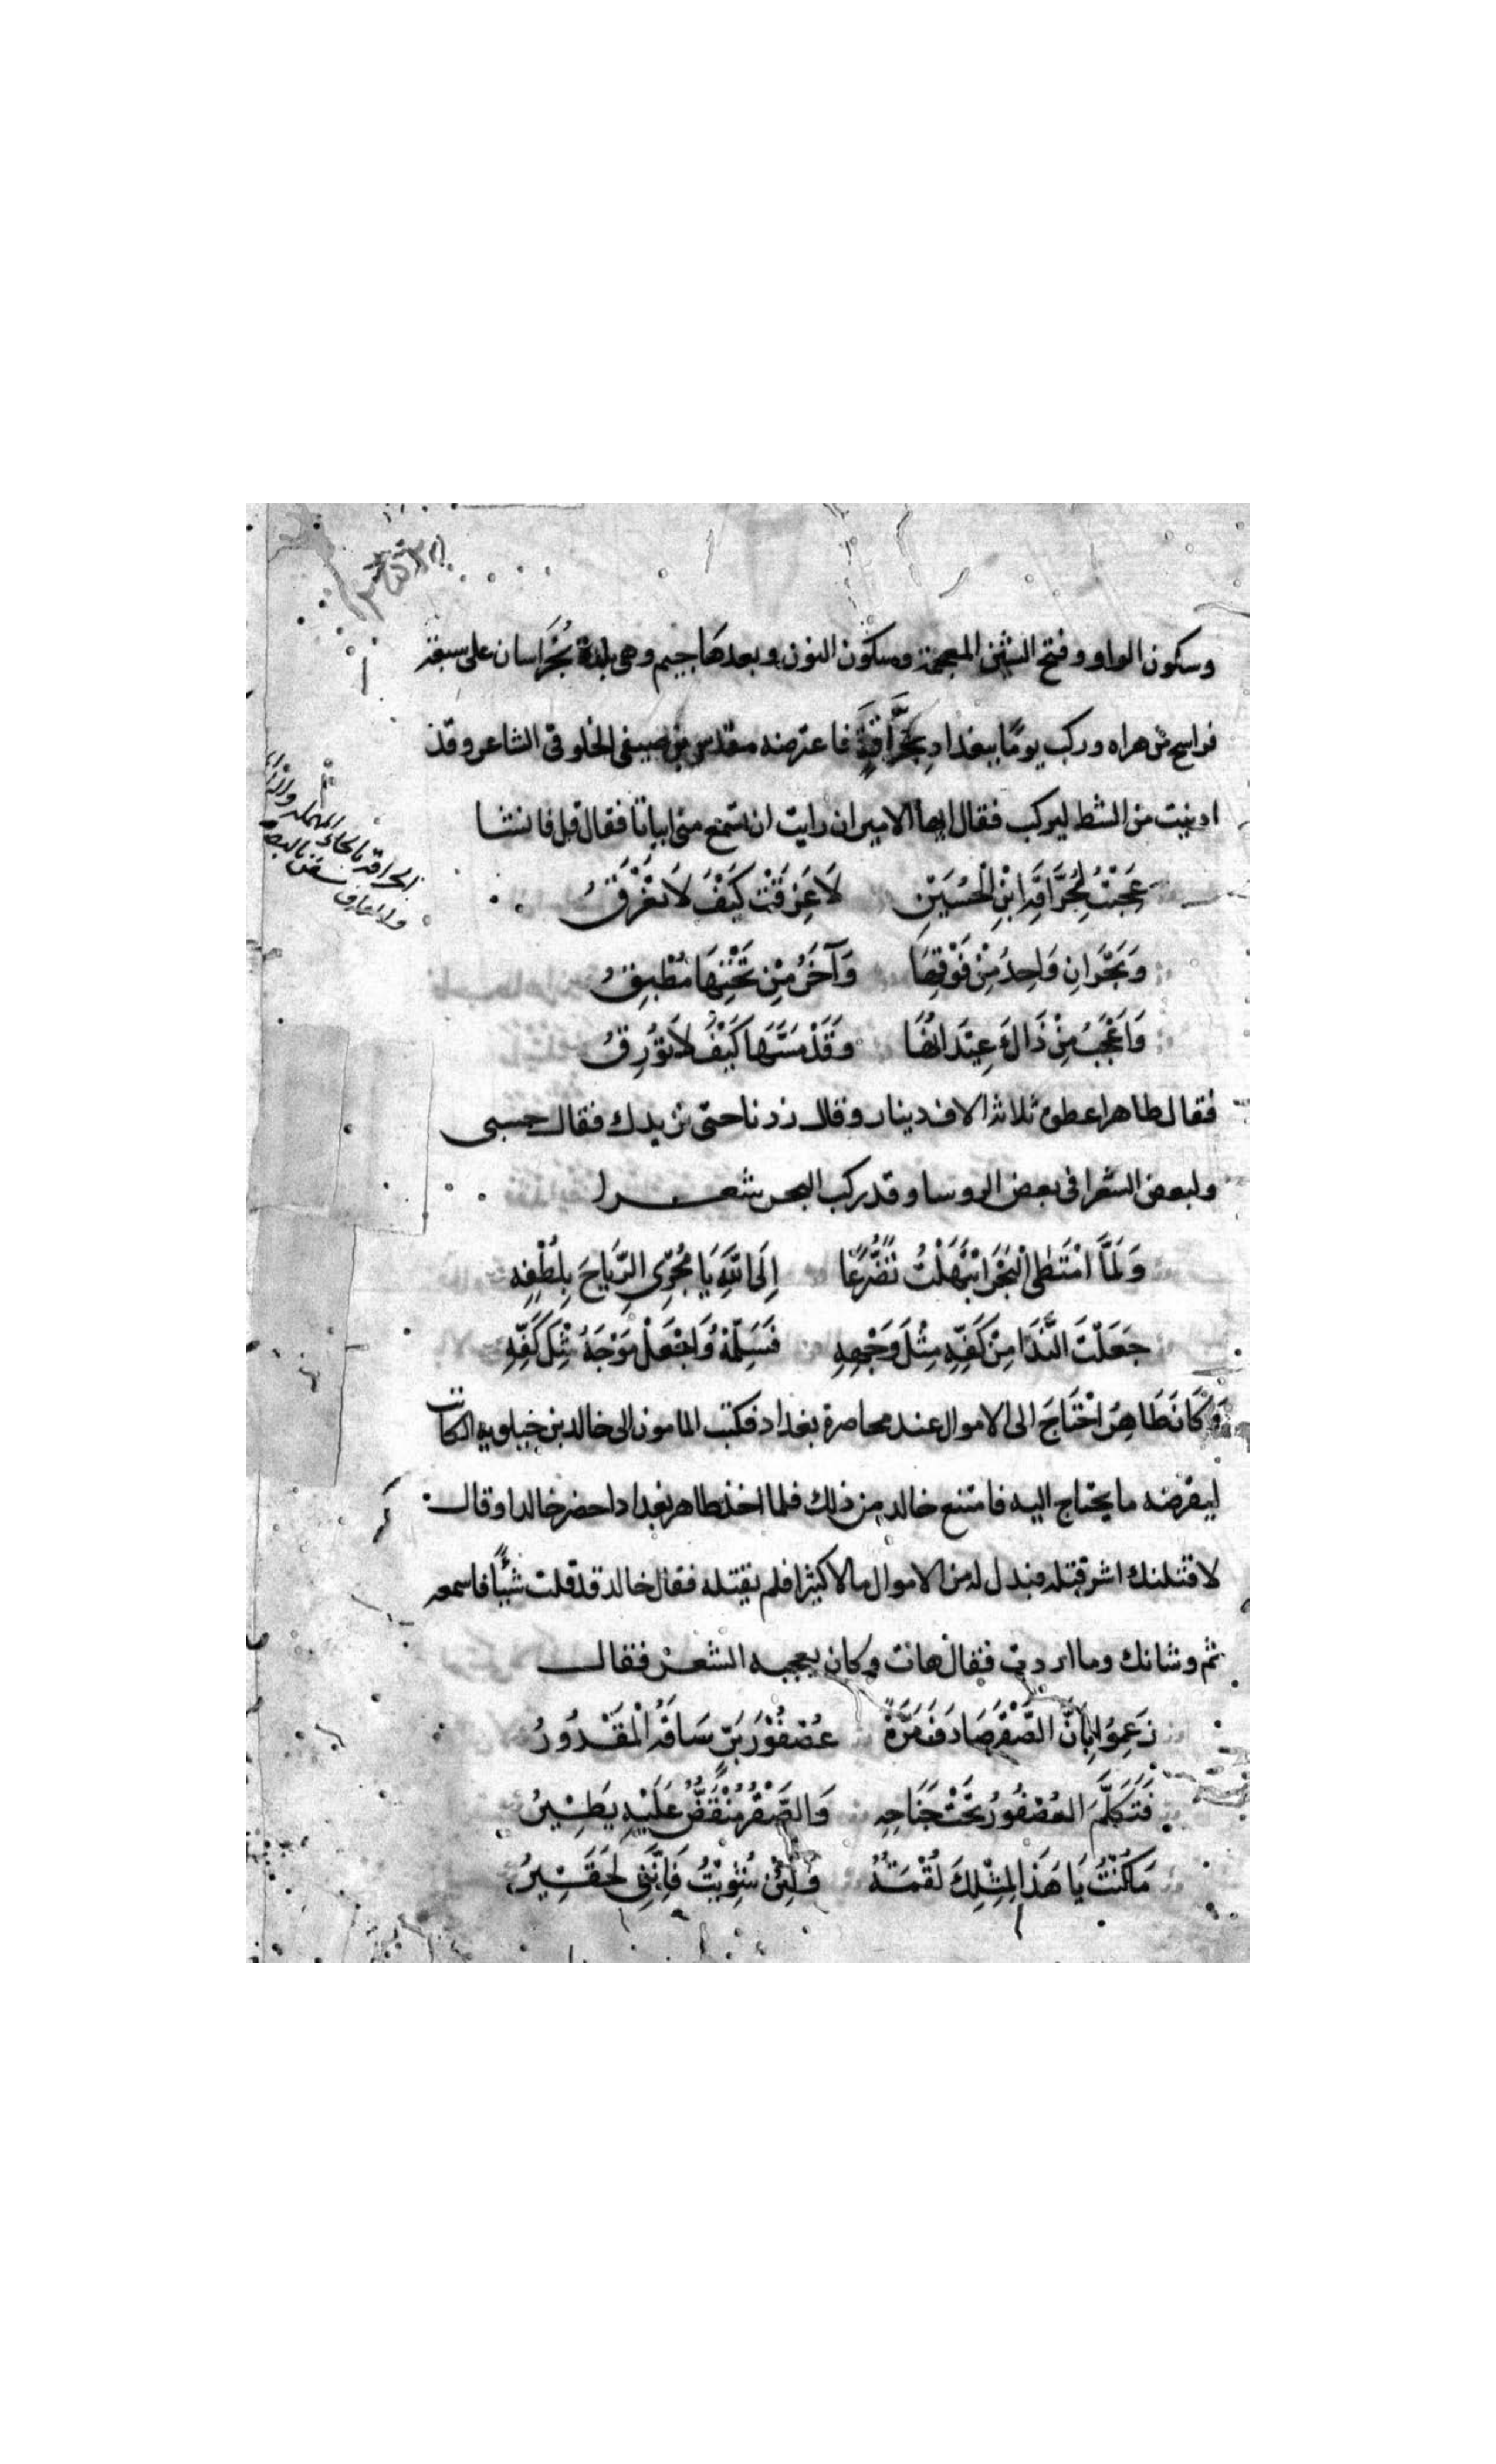 وسكون الواو وفتح الشين المعجمة وسكون النون وبعدها جيم وهى بلدة بخراسان على سبعة
فراسخ من هراه وركب يومًا ببغداد بِحَرَّاقَةٍ فاعترضه مقدس بن صيفى الخلوقى الشاعر وقد
ادنيت من الشط ليركب فقال ايها الامير ان رايت ان تسمع منى ابياتا فقال قل فانشا
عَجِبْتُ لِحُرَّاقَةِ ابْنِ الْحُسَيْنِ لَا غَرِقَتْ كَيْفَ لَا تَغْرَقُ
وَبَحْرَانِ وَاحِدُ مِنْ فَوْقِهَا وَآخَرُ مِنْ تَحْتِهَا مُطْبِقُ
وَاَعْجَبُ مِنْ ذَاكَ عِيْدَانُهَا وَقَدْ مَسَّهَا كَيْفَ لَا تُوْرِقُ
فقال طاهر اعطوه ثلاثة الاف دينار وقال زدنا حتى نزيدك فقال حسبى
ولبعض الشعرا فى بعض الروسا وقد ركب البحر شعرا
وَلَمَّا امْتَطَى الْبَحْرَ ابْتَهَلْتُ تَضَرُّعًا اِلَى اللَّهِ يَا مُجْرِىَ الرِّيَاحِ بِلُطْفِهِ
جَعَلْتَ النَّدَا مِنْ كَفِّهِ مِثْلَ وَجْهِهِ فَسَلِّمْهُ وَاجْعَلْ مَوْجَهُ مِثْلَ كَفِّهِ
وَكَانَ طَاهِرُ احْتَاجَ الى الاموال عند محاصرة بغداد فكتب المامون الى خالد بن خيلويه الكاتب
ليقرضه ما يحتاج اليه فامتنع خالد من ذلك فلما اخذ طاهر بغداد احضر خالدا وقال
لاقتلنك اشر قتله فبذل له من الاموال مالا كثيرا فلم يقتله فقال خالد قد قلت شيئًا فاسمعه
ثم وشانك وما اردت فقال هات وكان يعجبه الشعر فقال
زَعِمُوا بِاَنَّ الصَّقْرَ صَادَفَ مَرَّةً عُصْفُوْرَ بَرٍّ سَاقَهُ الْمَقْدُورُ
فَتَكَلَّمَ العُصْفُورُ تَحْتَ جَنَاحِهِ وَالصَّقْرُ مُنْقَضٌّ عَلَيْهِ يَطِيْرُ
مَا كُنْتُ يَا هَذَا لِمِثْلِكَ لُقْمَةً وَلَئِنْ شُوِيْتُ فَاِنَّنِى لَحَقِيْرُ
الحراقه بالحاء المهمله والراء